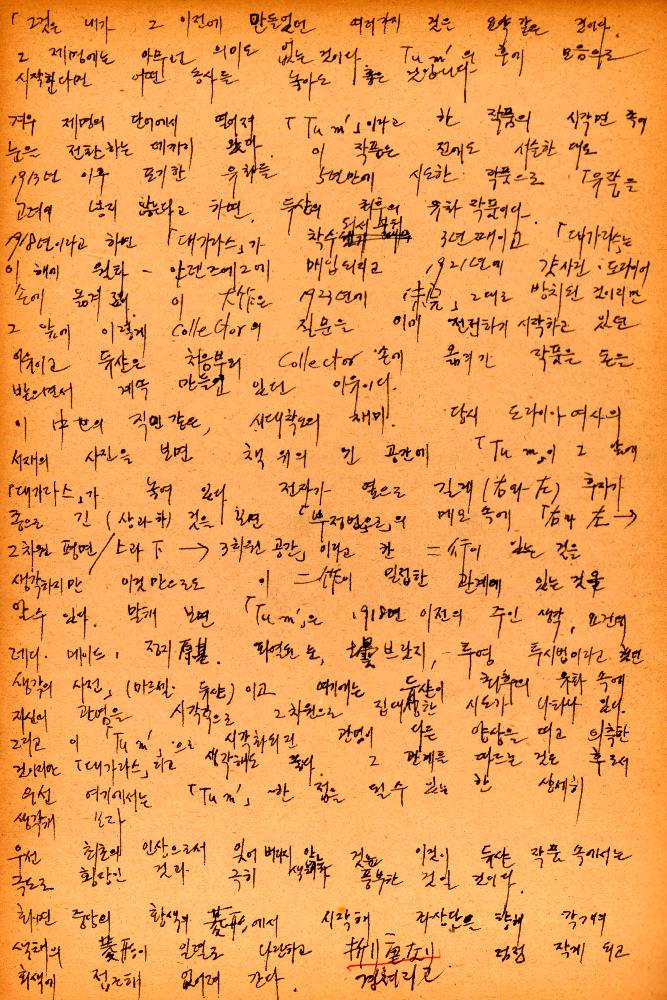 「그것은 내가 그 이전에 만들었던 여러가지 것은 요약 같은 것이다.
그 제명에는 아무런 의미도 없는 것이다. Tu m' 의 후에 모음으로
시작한다면 어떤 동사를 놓아도 좋은 것입니다.
겨우 제명의 단어에서 떨어져 「Tu m'」이라고 한 작품의 시작면 쪽에
눈을 전환하는 데까지 왔다. 이 작품은 전에도 서술한 대로
1913년 이후 포기한 유화를 5년만에 시도한 작품으로 「유작」은
고려에 넣지 않는다고 하면, 듀상의 최후의 유화 작품이다.
1918년이라고 하면 「대가라스」가 착수되서부터 3년째이고 「대가라스」는
이 해에 월타 - 아렌스버그에 매입되고 1921년에 캇사린·도라이어
손에 옮겨져 이 大作은 1923년에 「未完」 그대로 방치된 것이지만
그 앞에 이렇게 collector의 질문을 이미 전전하기 시작하고 있던
아유이고 듀상은 처음부터 collector 손에 옮겨간 작품을 손을
받으면서 계속 만들고 있던 아유이다.
이 中世의 직인 같은, 시대착오의 재미. 당시 도라이아 여사의
서재의 사진을 보면 책 위의 긴 공간에 「Tu m'」이 그 앞에
「대가라스」가 놓여 있다 전자가 옆으로 길게 (右와 左) 후자가
종으로 긴 (상과 하) 것을 보면 「부정법으로」의 메모 속에 「右와 左 →
2차원 평면 / 上과 下 → 3차원 공간」이라고 한 二作이 있는 것을
생각하지만 이것만으로도 이 二作이 밀접한 관계에 있는 것을
알 수 있다. 말해 보면 「Tu m'」은 1918년 이전의 주인 생각,
레디·메이드, 파열된 눈, 브랏지, 투영 투시법이라고 보면
생각의 사전, (마르셀·듀상) 이고 여기에는 듀상이 최후의 유화 속에
자신의 관념을 시각적으로 2차원으로 집대성한 시도가 나타나 있다.
그리고 이 「Tu m'」으로 시각화되고 관념이 다른 양상을 띠고
것이지만 「대가라스」라고 생각해도 좋다. 그 관계를 따르는 것은 후로서
우선 여기에서는 「Tu m'」 한 점을 될 수 있는 한 상세히
생각해 보자
우선 최초의 인상으로서 잊어버리지 않는 것은 이것이 듀상 작품 속에서는
극도로 황당한 것과 극히 색채가 풍부한 것일 것이다.
화면 중앙의 황색의 菱形에서 시작해 좌상단을 향해 각각의
색채의 菱形이 일렬로 나란하고 점점 작게 되고
회색에 접근해 없어져 간다. 겹쳐지고